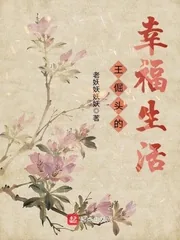 王倔头的
幸福生活
老妖妖妖妖 著